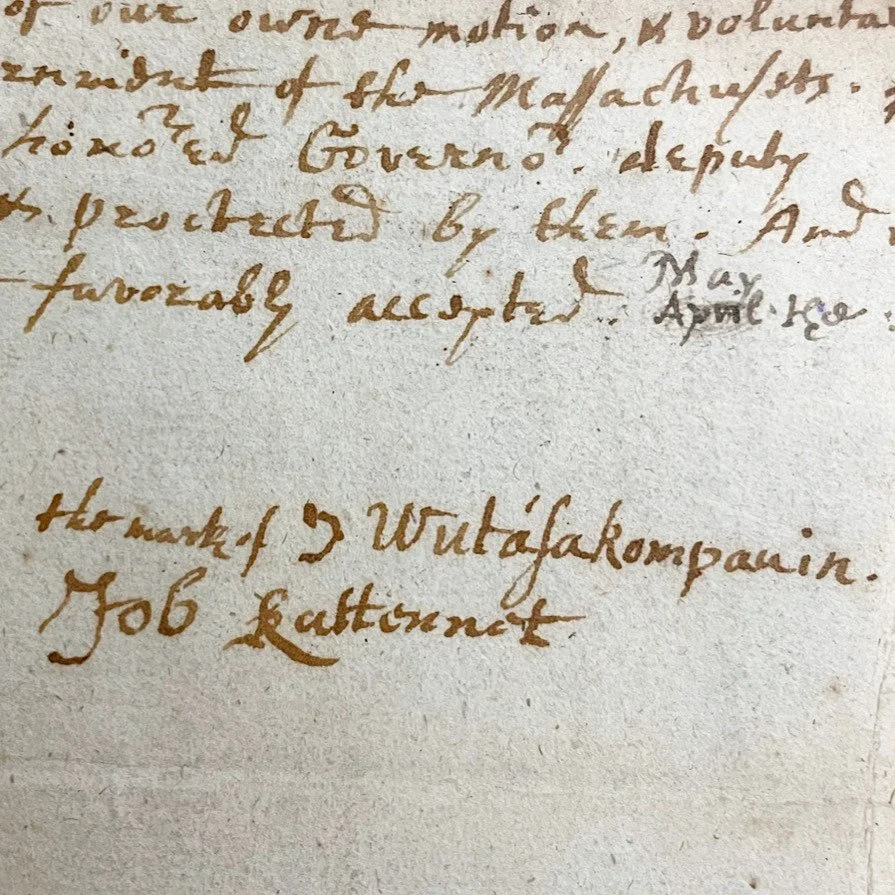 of our owne motion, & volunta
ernment of the Massachusets.
honored Governor. deputy
ts. proctected by them. And
favorably accepted. May
April. the
the mark of Ɔ Wutásakompauin.
Job Kattennet